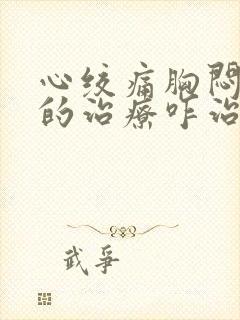 心绞痛胸闷
的治疗咋治
武争